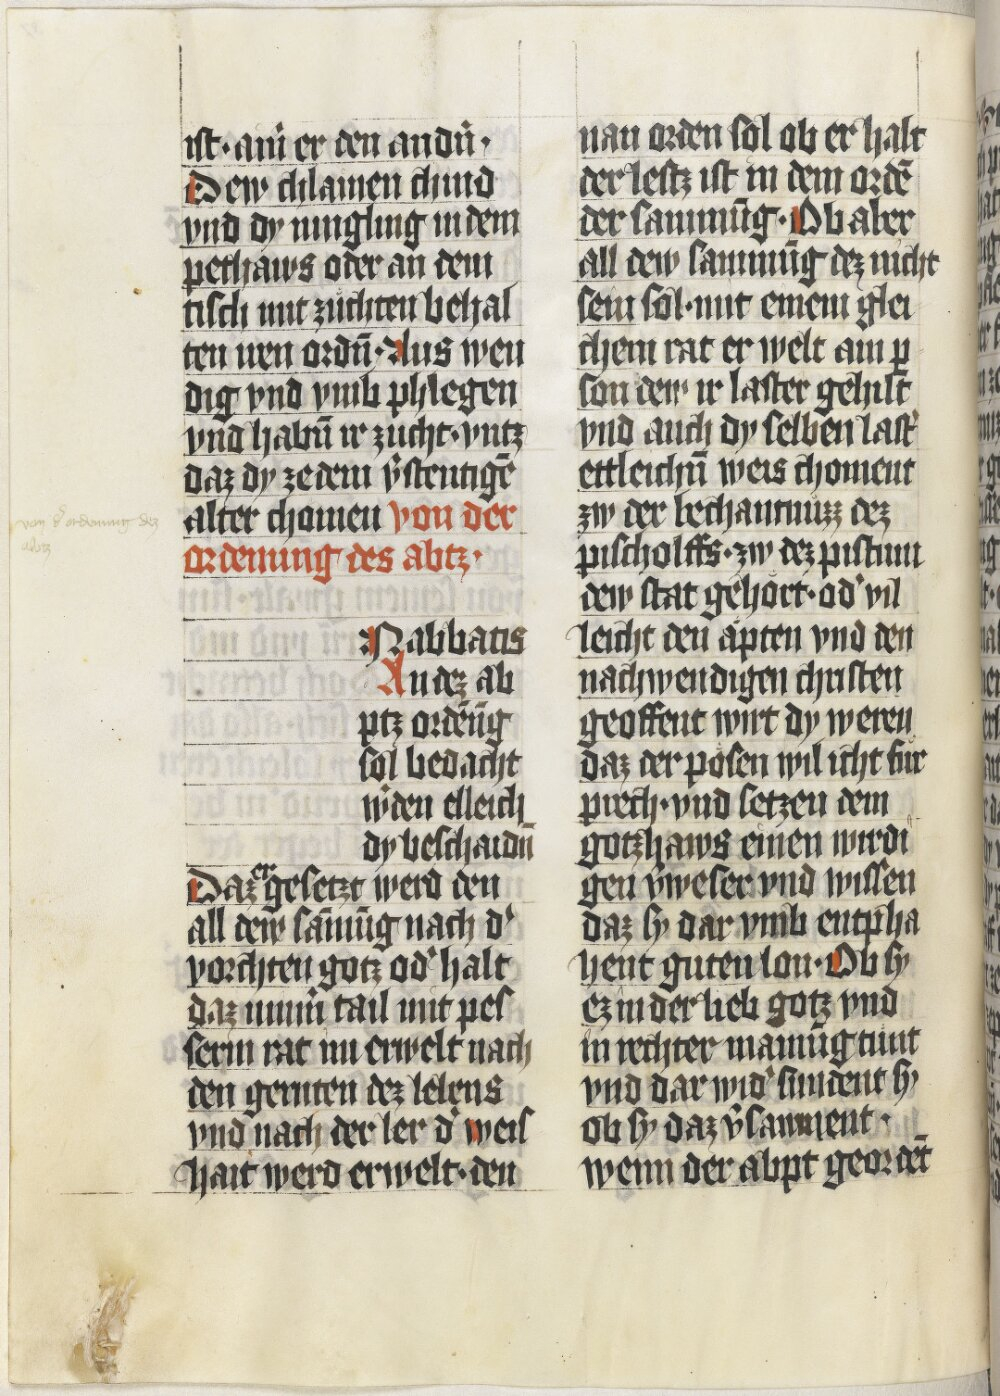 ist · ain̄ er den andn̄ ·
Dew chlainen chind
vnd dy iungling in dem
pethaws oder an dem
tisch mit züchten behal
ten iren ordn̄ · Aus wen
dig vnd vmb phlegen
vnd habn̄ ir zucht · vntz
daz dy ze dem v̄stentigē
alter chomen von der
ordenung des abtz ·
von dʼ ordenung dez
abtz
N abbatis
An dez ab
ptz ordēūg
sol bedacht
wʼden elleich
dy beschaidn̄
Daz er gesetzt werd den
all dew sām̄ūg nach dʼ
vorchten gotz odʼ halt
daz minn̄ tail mit pes
serm rat nu erwelt nach
den gernten dez lebens
vnd nach der ler dʼ weis
hait werd erwelt · den
nan orden sol ob er halt
der lestz ist in dem ordē
der sammūg · Ob aber
all dew sammūg dez nicht
sein sol · mit einem glei
chem rat er welt ain p̱
son dew ir laster gehilt
vnd auch dy selben lastʼ
ettleichn̄ weis choment
zw der bechantnuzz dez
pischolffs · zw dez pistum
dew stat gehört · odʼ vil
leicht den äpten vnd den
nachwendigen christen
geoffent wirt dy weren
daz der posen wil icht für
prech · vnd setzen dem
gotzhaws einen wirdi
gen v̄weser vnd wissen
daz sy dar vmb entpha
hent guten lon · Ob sy
ez in der lieb gotz vnd
in rechter mainūg tunt
vnd dar widʼ sundent sy
ob sy daz v̄saument ·
wenn der abpt geordēt